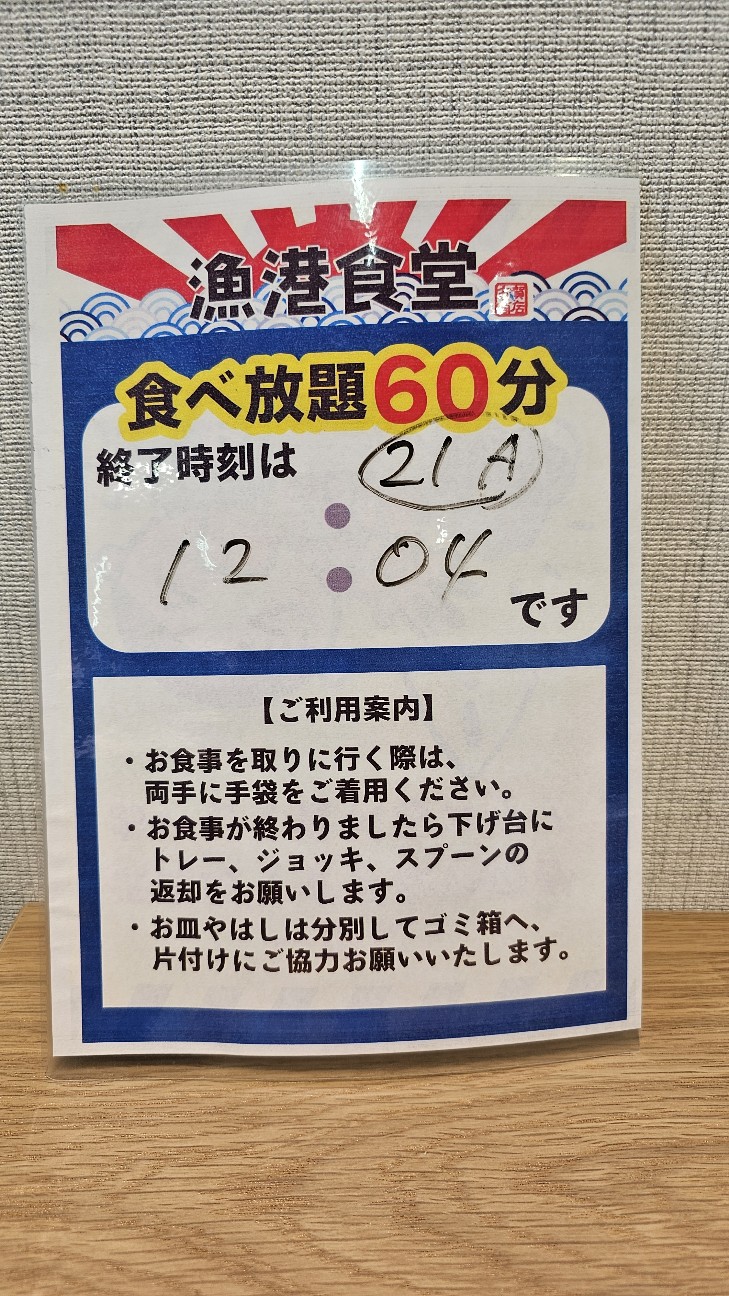 漁港食堂
食べ放題60分
終了時刻は
21A
12:04
です
【ご利用案内】
・お食事を取りに行く際は、
両手に手袋をご着用ください。
・お食事が終わりましたら下げ台に
トレー、ジョッキ、スプーンの
返却をお願いします。
・お皿やはしは分別してゴミ箱へ、
片付けにご協力お願いいたします。